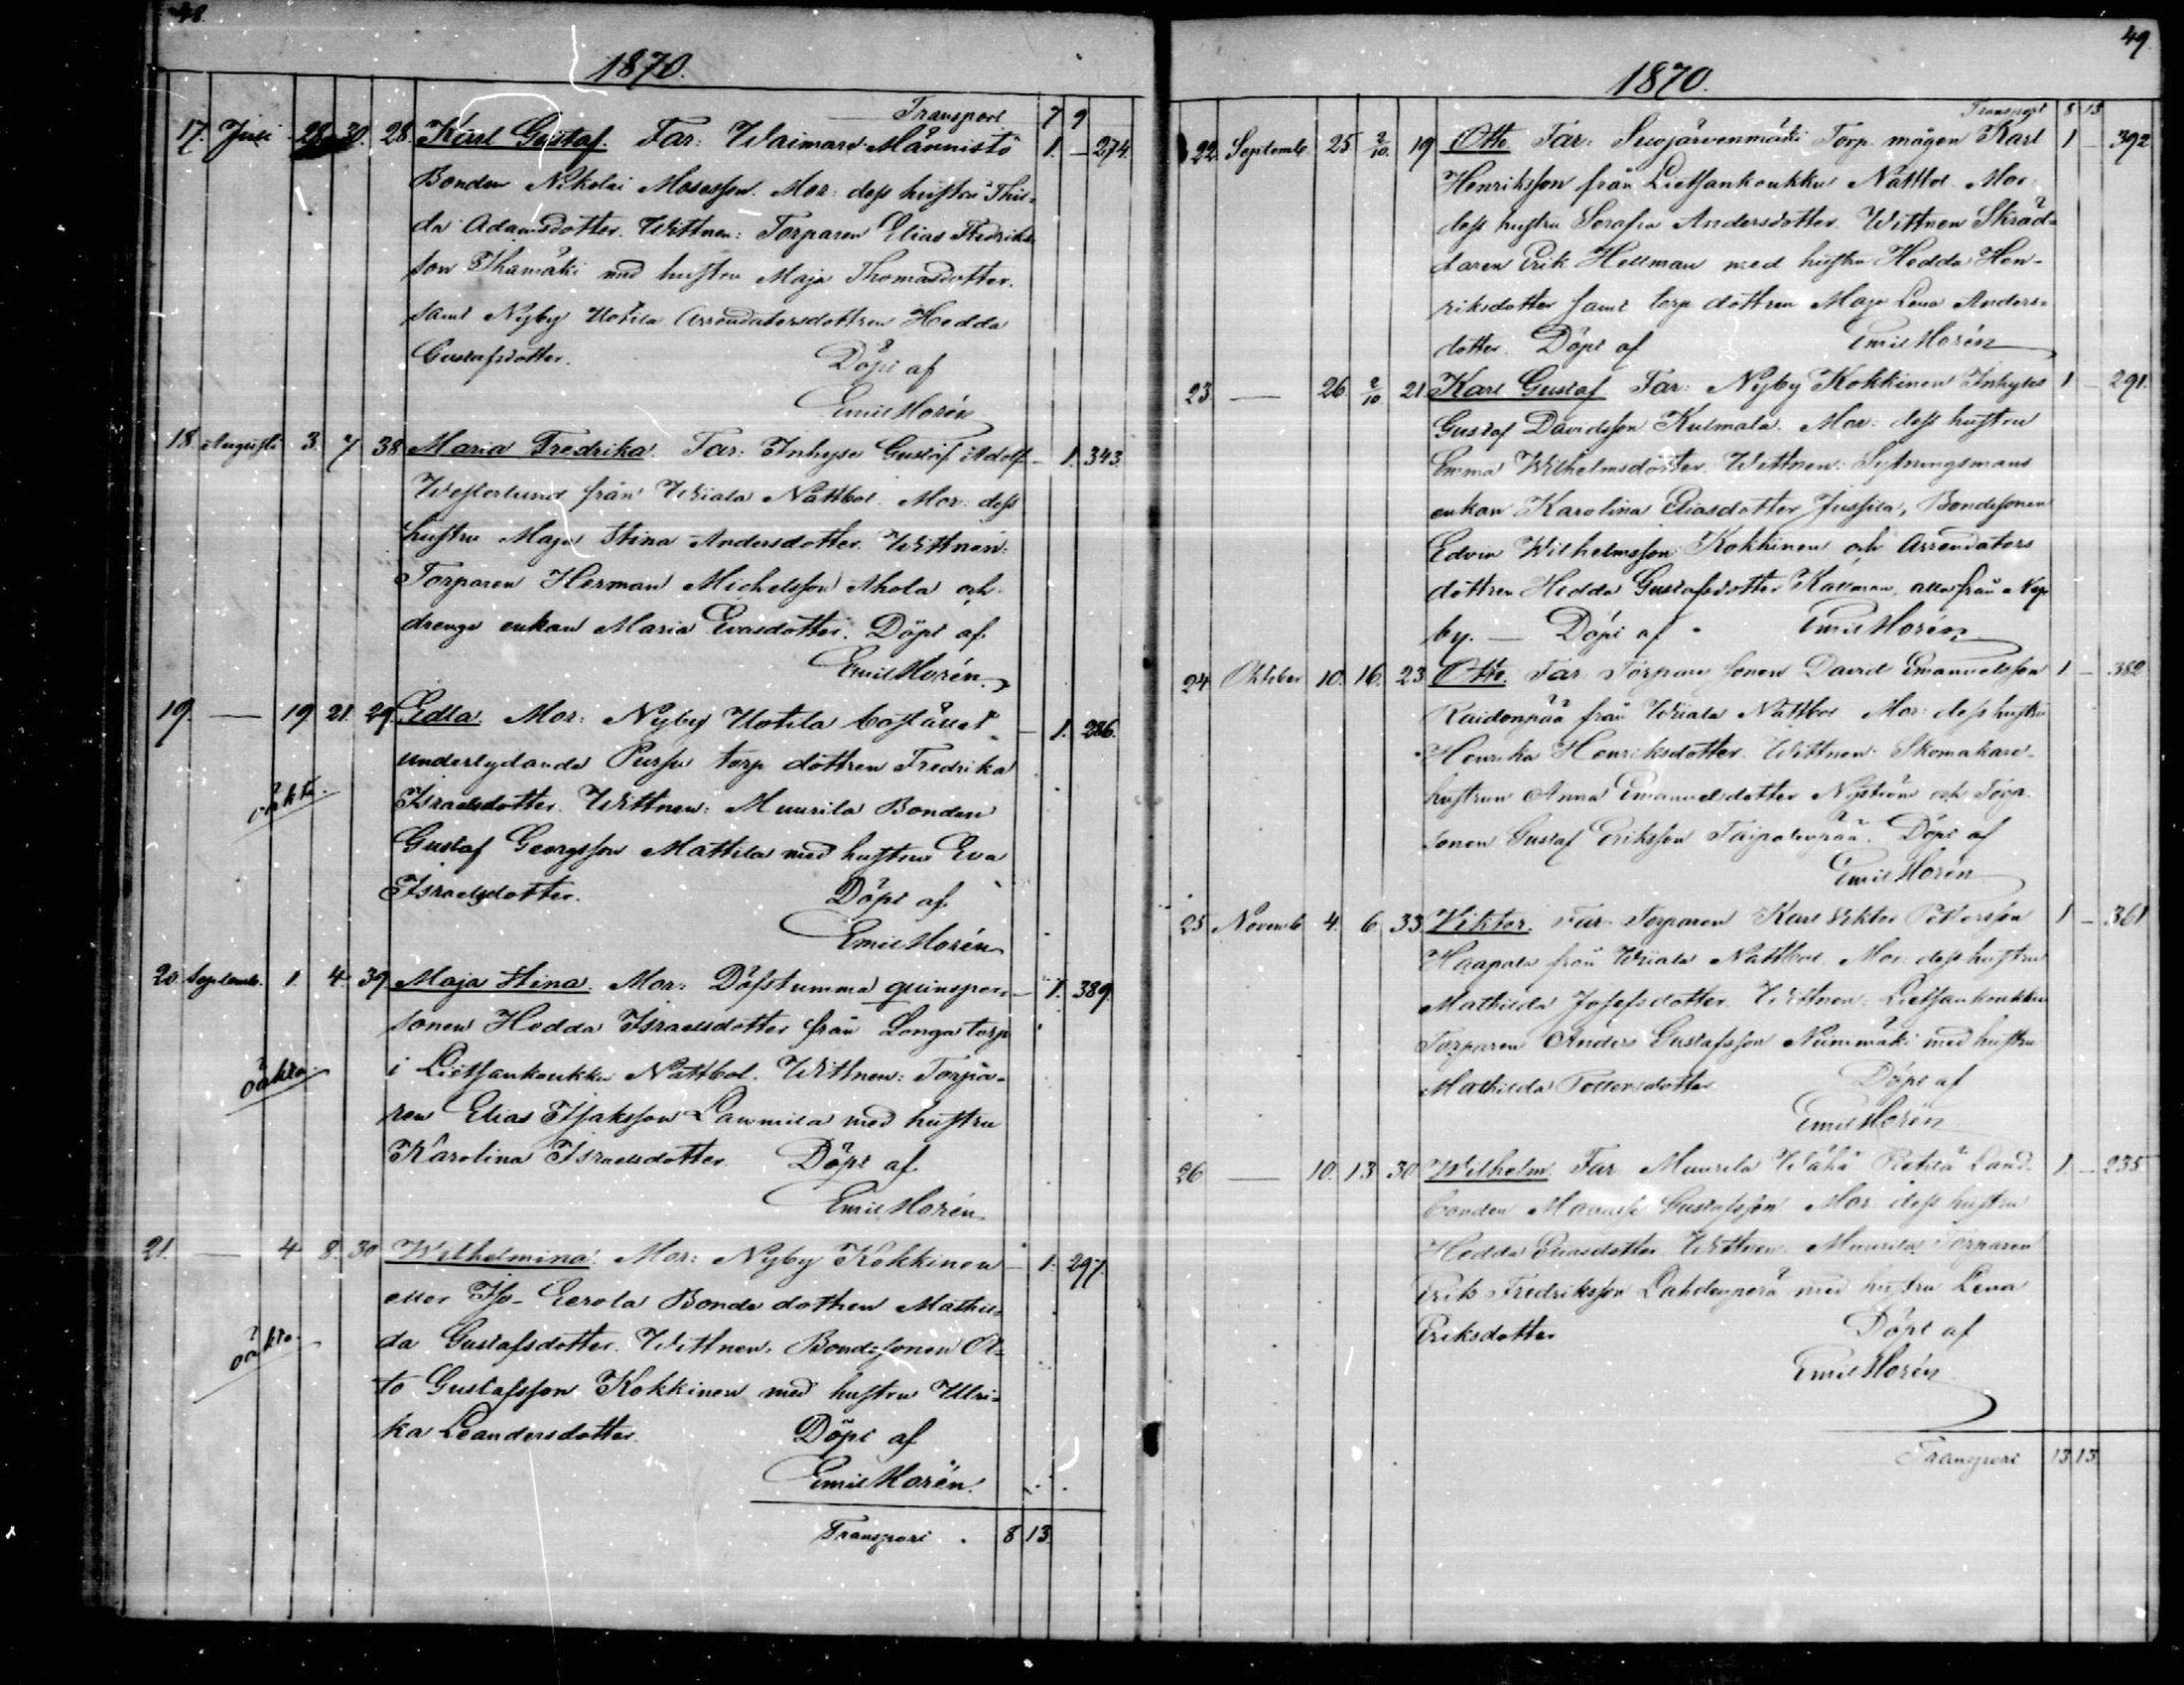 48.
1870.
Transport 7 9
17. Juli 28 30. 28 Karl Gustaf. Far: Waimaro Männistö 1. – 274.
Bonden Nikolai Mosesson. Mor: dess hustru Thil-
da Adamsdotter. Wittnen: Torparen Elias Fredriks-
son Ihamäki med hustru Maja Thomasdotter.
samt Nyby Uotila Arrendatorsdottren Hedda
Gustafsdotter. Döpt af
Emil Horén
18. Augusti 3. 7 38 Maria Fredrika. Far: Inhyse Gustaf Adolf – 1. 343.
Westerlund från Wiiala Nattbol. Mor: dess
hustru Maja Stina Andersdotter. Wittnen:
Torparen Herman Michelsson Ahola och
drenge enkan Maria Evasdotter. Döpt af
Emil Horén
19. — 19 21. 29. Edla. Mor: Nyby Uotila bostället – 1. 286.
underlydande Pursu torp dottren Fredrika
oäkta.
Israelsdotter. Wittnen: Muurila Bonden
Gustaf Georgsson Mattila med hustru Eva
Israelsdotter. Döpt af
Emil Horén
20. Septemb. 1. 4. 39 Maja Stina. Mor: Döfstumma quinsper- – 1. 389.
sonen Hedda Israelsdotter från Longa torp
oäkta.
i Lietsankoukku Nattbol. Wittnen: Torpa-
ren Elias Isaksson Lammila med hustru
Karolina Israelsdotter. Döpt af
Emil Horén
21. — 4 8. 30 Wilhelmina. Mor: Nyby Kokkinen – 1. 297.
eller Iso-Eerola Bonde dottren Mathil-
oäkta.
da Gustafsdotter. Wittnen: Bondesonen Ot-
to Gustafsson Kokkinen med hustru Ulri-
ka Leandersdotter. Döpt af
Emil Horén.
Transport . 8 13
49.
1870.
Transport 8 13
22. Septemb. 25 2/10. 19 Otto. Far: Suojärvenmäki Torp. mågen Karl 1 – 392
Henriksson från Lietsankoukku Nattbol. Mor:
dess hustru Serafia Andersdotter. Wittnen Skräd-
daren Erik Hellman med hustru Hedda Hen-
riksdotter samt torp dottren Maja Lena Anders-
dotter. Döpt af Emil Horén
23 — 26 2/10. 21. Karl Gustaf Far: Nyby Kokkinen Inhyses 1 – 291.
Gustaf Davidsson Kulmala. Mor: dess hustru
Emma Wilhelmsdotter. Wittnen: Sytningsmans
enkan Karolina Eliasdotter Jussila, Bondesonen
Edvin Wilhelmsson Kokkinen och Arrendators
dottren Hedda Gustafsdotter Källman, alla från Ny-
by. — Döpt af Emil Horén
24 Oktober 10. 16. 23 Otto. Far: Torpare sonen David Emanuelsson 1 – 382
Kaidonpää från Wiiala Nattbol Mor: dess hustru
Henrika Henriksdotter. Wittnen: Skomakare-
hustrun Anna Emanuelsdotter Nyström och Torp.
sonen Gustaf Eriksson Taipalenpää. Döpt af
Emil Horén
25 Novemb 4. 6. 33 Viktor. Far: Torparen Karl Viktor Pettersson 1 – 361
Haapala från Wiiala Nattbol. Mor: dess hustru
Mathilda Josefsdotter. Wittnen: Lietsankoukku
Torparen Anders Gustafsson Niinimäki med hustru
Mathilda Döpt af
Emil Horén
26 — 10. 13 30 Wilhelm. Far Muurila Wähä Pietilä Land- 1. – 235
bonden Manasse Gustafsson Mor: dess hustru
Hedda Eliasdotter. Wittnen: Muurila Torparen
Erik Fredriksson Lahdenperä med hustru Lena
Eriksdotter Döpt af
Emil Horén
Transport 13 13.